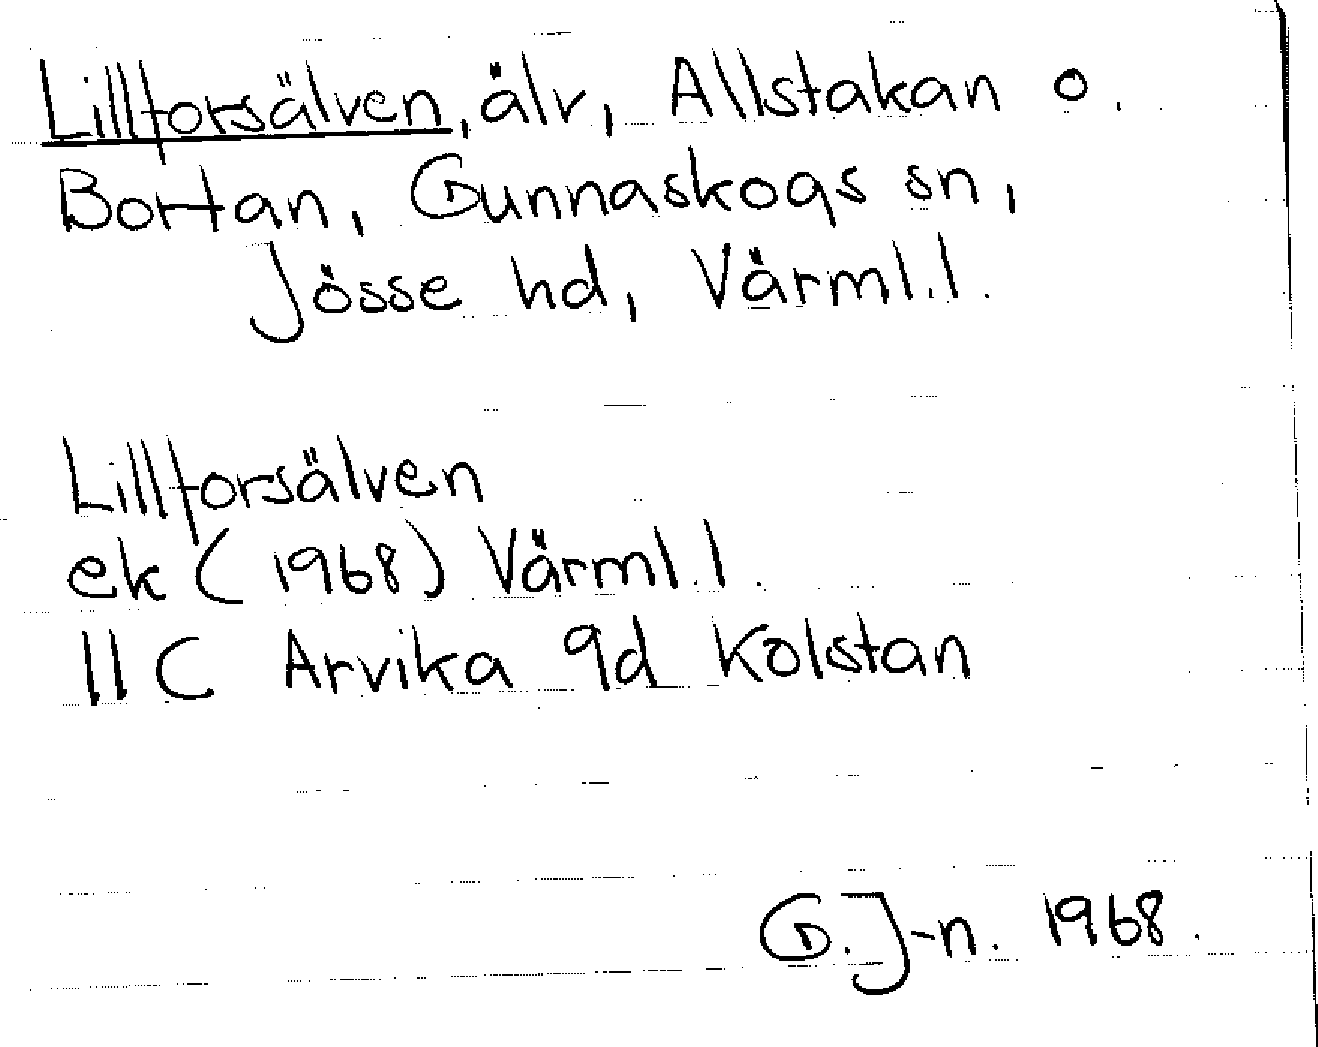 Lillforsälven, älv, Allstakan o.
Bortan, Gunnaskogs sn,
Jösse hd, Värml.l.
Lillforsälven
ek (1968) Värml.l.
11C Arvika 9d Kölstan
G.J-n. 1968.